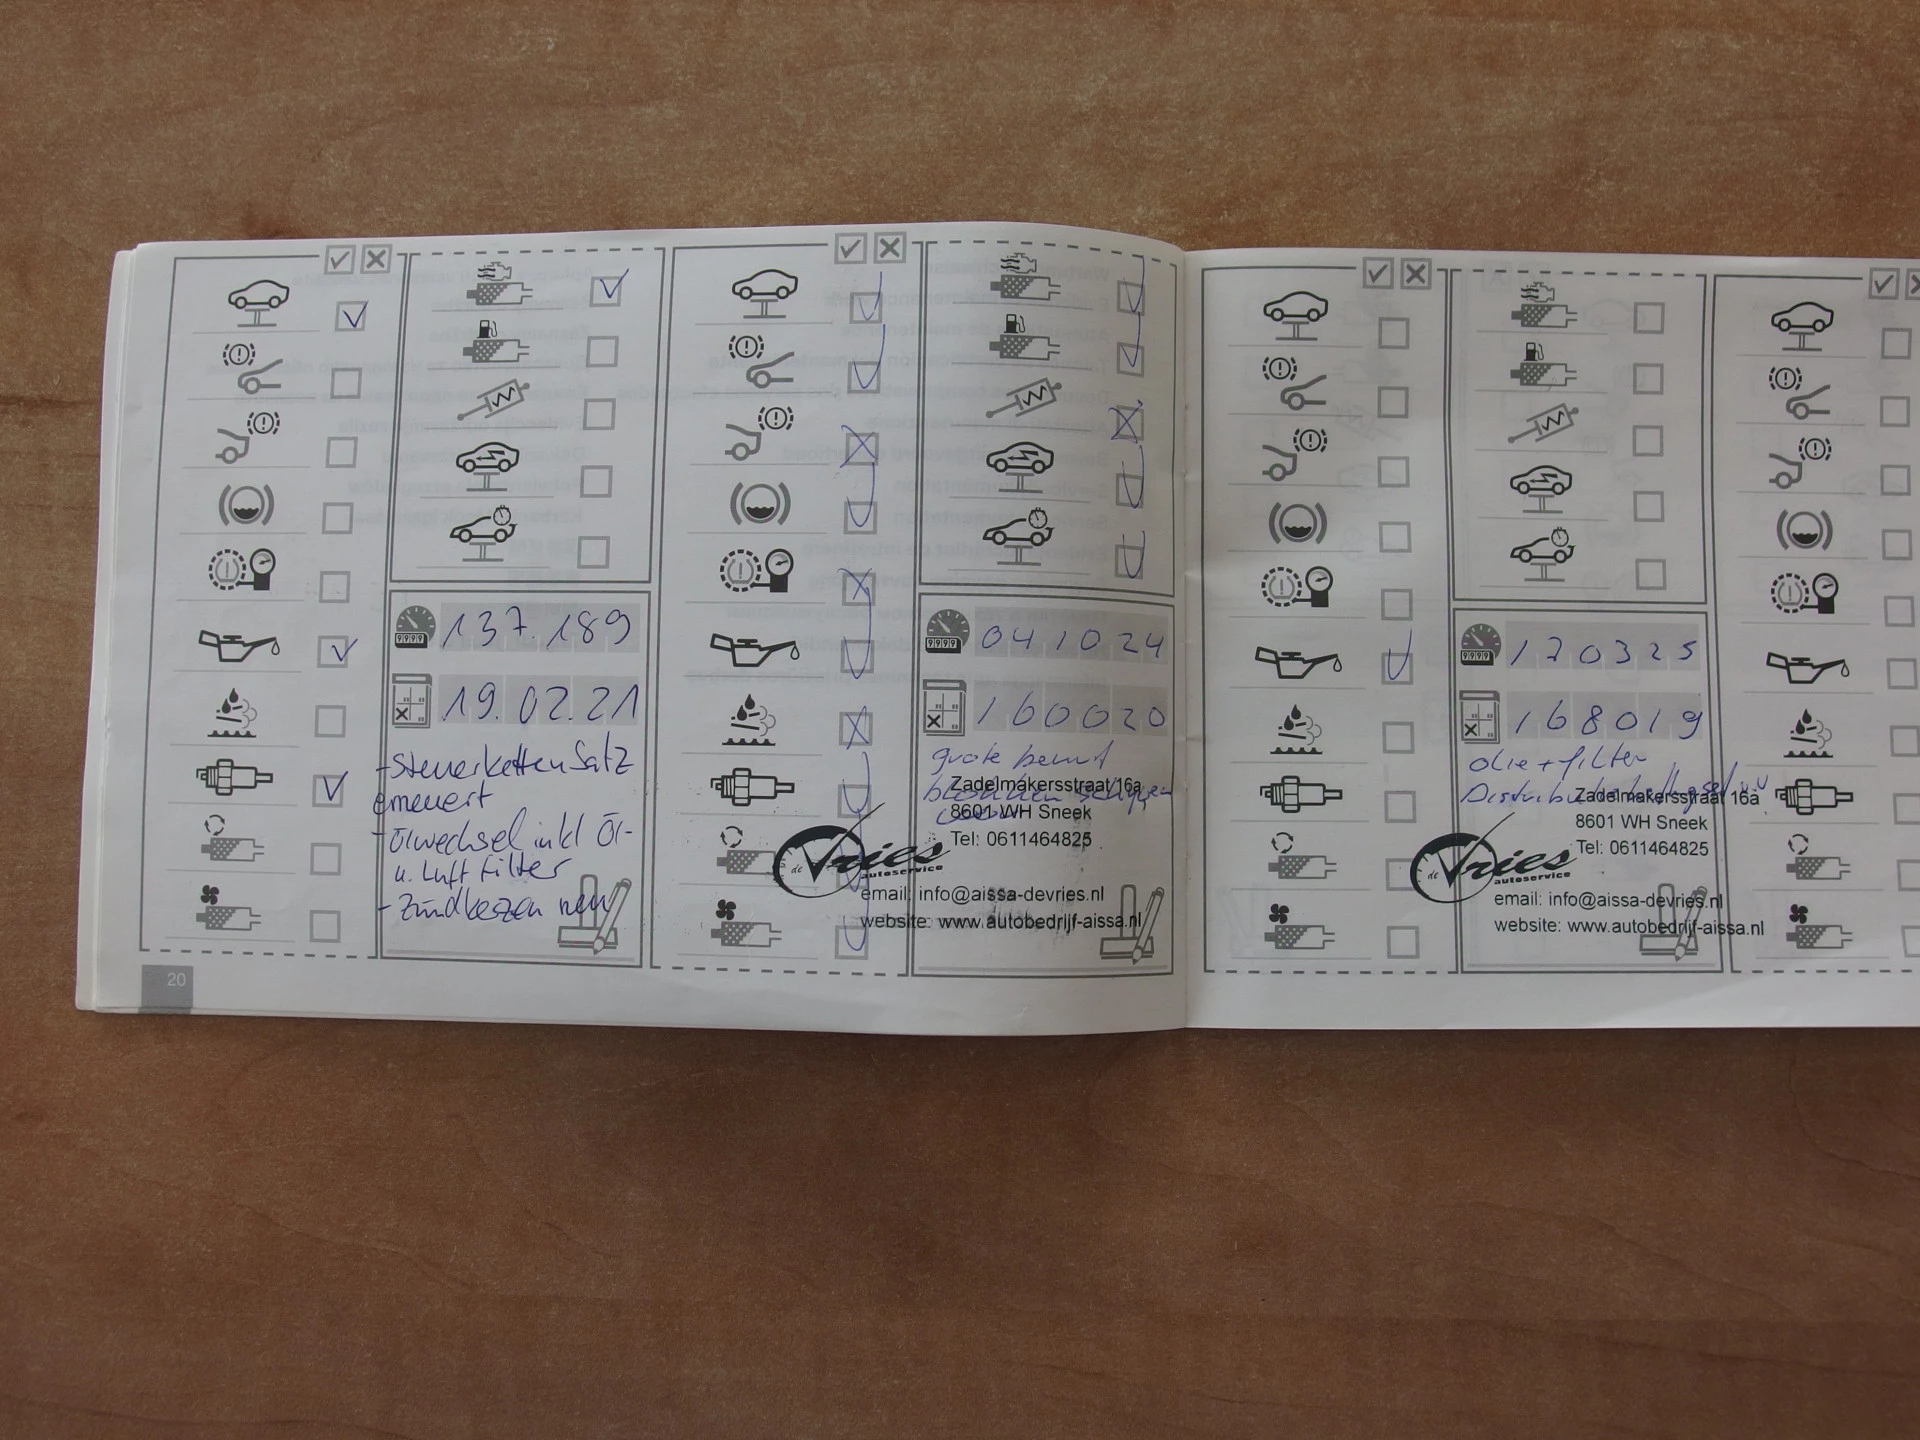 137.189
19.02.21
- Steuerkettensatz
erneuert
- Ölwechsel inkl Öl-
u. Luftfilter
- Zündkerzen neu
20
041024
160020
grote beurt
Zadelmakersstraat 16a
8601 WH Sneek
Tel: 0611464825
de Vries
autoservice
email: info@aissa-devries.nl
website: www.autobedrijf-aissa.nl
170325
168019
olie + filter
Zadelmakersstraat 16a
8601 WH Sneek
Tel: 0611464825
de Vries
autoservice
email: info@aissa-devries.nl
website: www.autobedrijf-aissa.nl